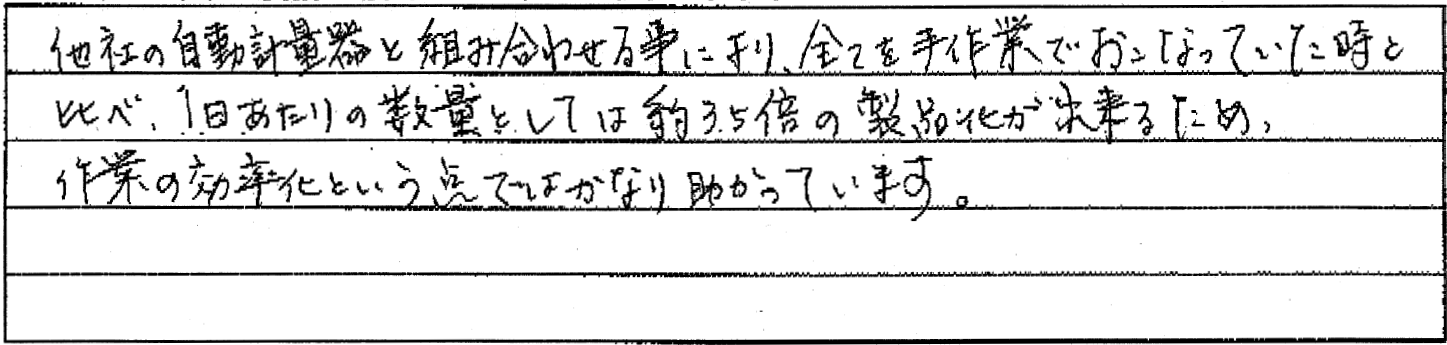 他社の自動計量器と組み合わせる事により、全てを手作業でおこなっていた時と
比べ、1日あたりの数量としては約3.5倍の製品化が出来るため、
作業の効率化という点ではかなり助かっています。